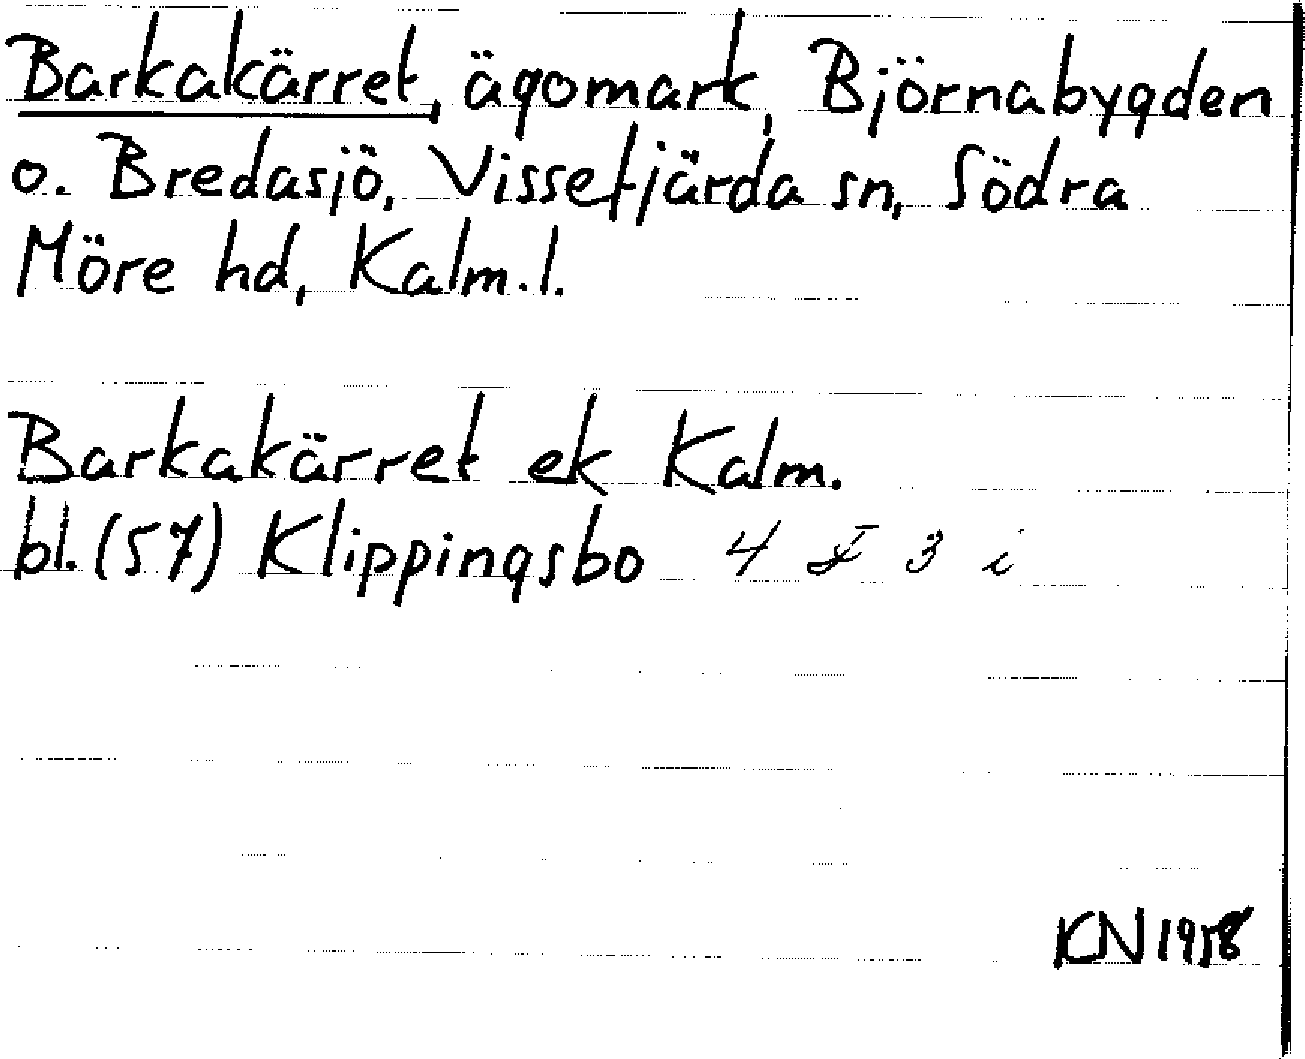 Barkakärret, ägomark, Björnabygden
o. Bredasjö, Vissefjärda sn, Södra
Möre hd, Kalm. l.
Barkakärret ek Kalm.
bl. (57) Klippingsbo 4 F 3 i
KN 1958